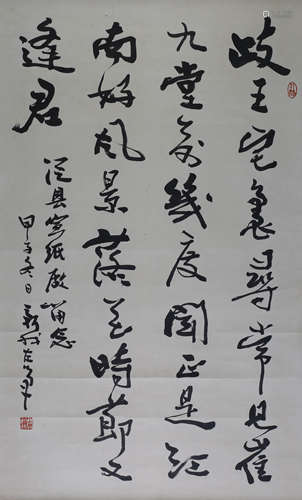 岐王宅裏尋常見崔
九堂前幾度聞正是江
南好風景落花時節又
逢君
涇縣宣紙廠留念
甲子冬日